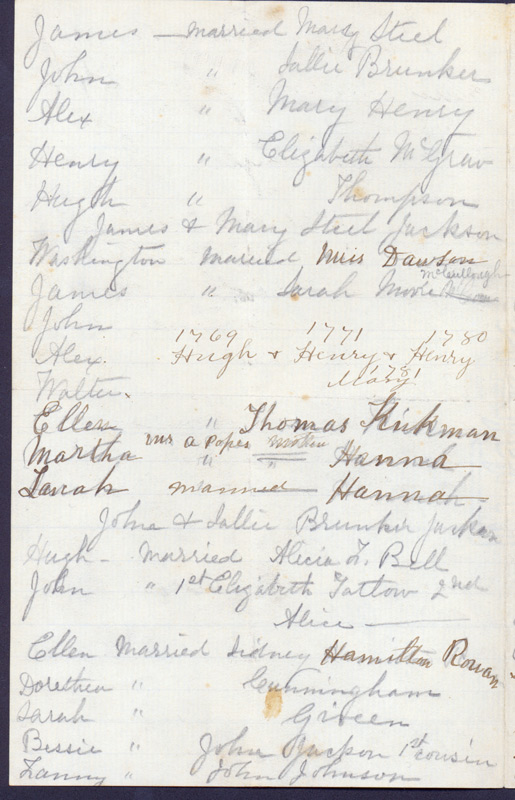 James — married Mary Steel
John " Sallie Brunker
Alex " Mary Henry
Henry " Elizabeth McGraw
Hugh " Thompson
James & Mary Steel Jackson
Washington married Miss Dawson
James " Sarah Moore McCullough
John
1769 1771 1780
Alex. Hugh & Henry & Henry
Mary 1781
Walter.
Ellen " Thomas Kirkman
Martha " " Hanna
Sarah married Hannah
John & Sallie Brunker Jackson
Hugh - married Alicia F. Bell
John " 1st Elizabeth Tatlow 2nd
Alice —
Ellen Married Sidney Hamilton Rowan
Dorethea " Cunningham
Sarah " Giveen
Bessie " John Jackson 1st cousin
Fanny " John Johnson